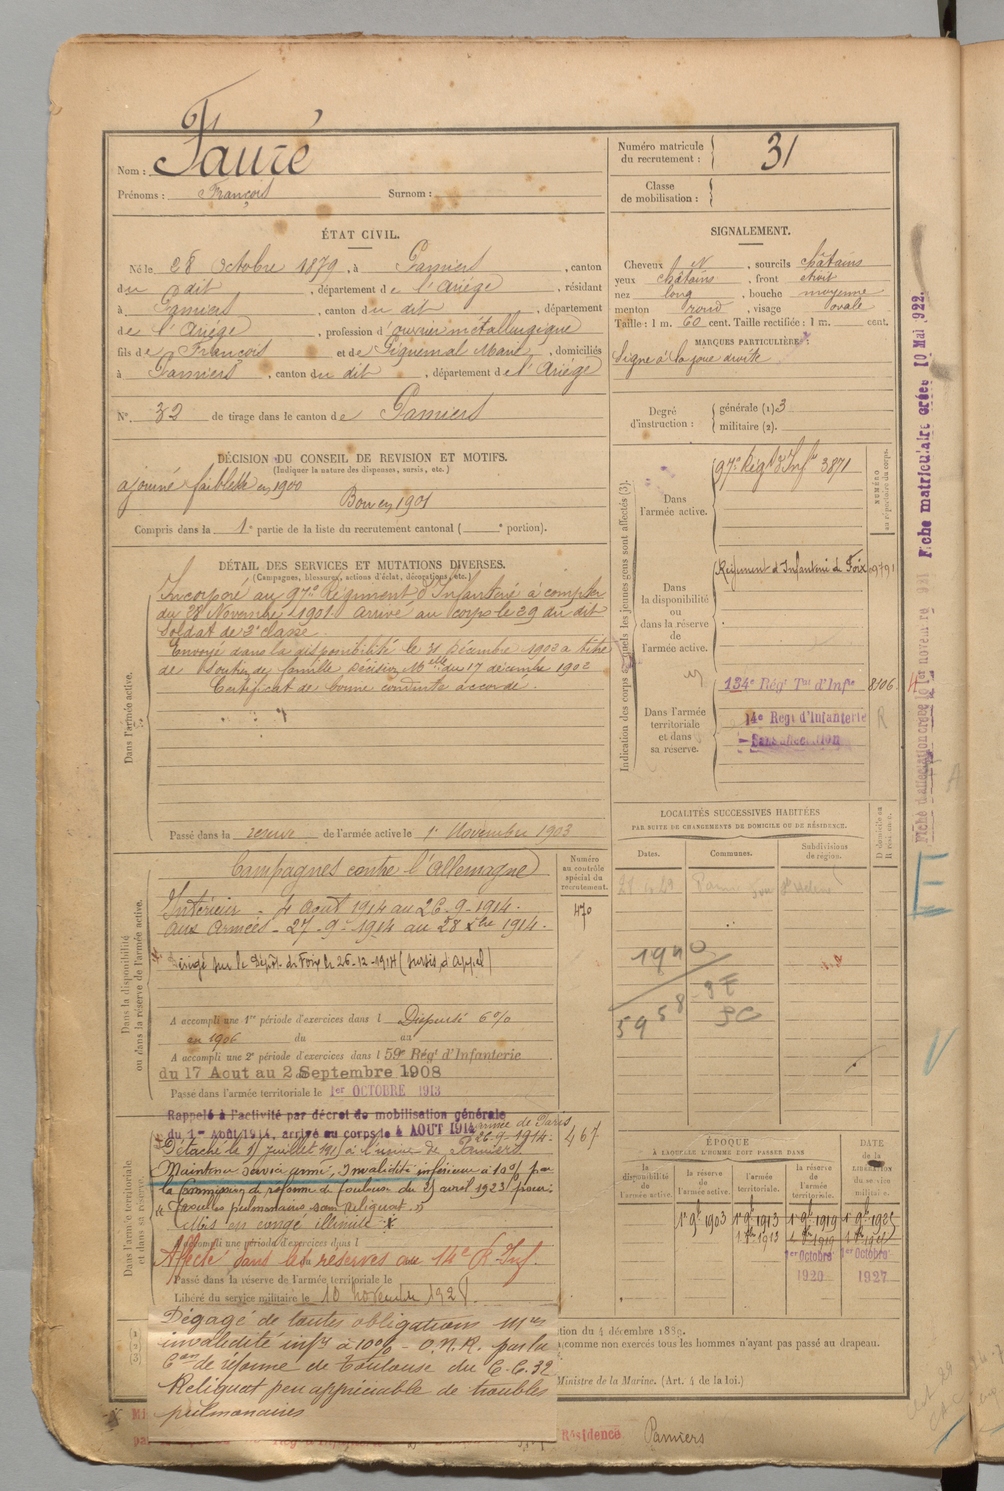 Nom : Fauré
Prénoms : François Surnom :
Numéro matricule du recrutement : 31
Classe de mobilisation :
ÉTAT CIVIL.
Né le 28 Octobre 1879, à Pamiers, canton
du dit, département de l'Ariège, résidant
à Pamiers, canton du dit, département
de l'Ariège, profession d'ouvrier métallurgique
fils de François et de Piquemal Marie, domiciliés
à Pamiers, canton du dit, département de l'Ariège
N° 32 de tirage dans le canton de Pamiers
SIGNALEMENT.
Cheveux N, sourcils châtains
yeux châtains, front étroit
nez long, bouche moyenne
menton rond, visage ovale
Taille : 1 m. 60 cent. Taille rectifiée : 1 m. cent.
MARQUES PARTICULIÈRES :
Signe à la joue droite
Degré d'instruction : générale (1) 3
militaire (2).
DÉCISION DU CONSEIL DE REVISION ET MOTIFS.
(Indiquer la nature des dispenses, sursis, etc.)
ajourné faiblesse en 1900
Bon en 1901
Compris dans la 1e partie de la liste du recrutement cantonal ( e portion).
DÉTAIL DES SERVICES ET MUTATIONS DIVERSES.
(Campagnes, blessures, actions d'éclat, décorations, etc.)
Dans l'armée active.
Incorporé au 97e Régiment d'Infanterie à compter
du 28 Novembre 1901. Arrivé au corps le 29 du dit
Soldat de 2e classe.
Envoyé dans la disponibilité le 31 Décembre 1902 à titre
de soutien de famille Décision Mlle du 17 décembre 1902
Certificat de bonne conduite accordé.
Passé dans la réserve de l'armée active le 1r Novembre 1903
Indication des corps auxquels les jeunes gens sont affectés (3).
NUMÉRO au répertoire du corps.
Dans l'armée active.
97e Régt d'Infie 3871
Dans la disponibilité ou dans la réserve de l'armée active.
Régiment d'Infanterie de Foix 09791
Dans l'armée territoriale et dans sa réserve.
134e Régt Tal d'Infie 8106
14e Régt d'Infanterie
Sans affectation
R
Fiche matriculaire créée 10 Mai 1922.
LOCALITÉS SUCCESSIVES HABITÉES
PAR SUITE DE CHANGEMENTS DE DOMICILE OU DE RÉSIDENCE.
Dates. Communes. Subdivisions de région. D domicile ou R résidence.
1940
5958
Dans la disponibilité ou dans la réserve de l'armée active.
Campagnes contre l'Allemagne
Numéro au contrôle spécial du recrutement.
470
Intérieur - 4 Août 1914 au 26-9-1914.
aux Armées - 27-9-1914 au 28 Xbre 1914.
Dirigé sur le Dépôt de Foix le 26-12-1914 (sursis d'appel)
A accompli une 1re période d'exercices dans l Dispensé 6%
en 1906 du au
A accompli une 2e période d'exercices dans l 59e Régt d'Infanterie
du 17 Aout au 2 Septembre 1908
Passé dans l'armée territoriale le 1er OCTOBRE 1913
Dans l'armée territoriale et dans sa réserve.
Rappelé à l'activité par décret de mobilisation générale
du 1er Août 1914, arrivé au corps le 4 AOUT 1914 armée de Paris 26-9-1914. 467
Détaché le 15 juillet 1915 à l'usine de Pamiers.
Maintenu service armé, Invalidité inférieure à 10% par
la Commission de réforme de Toulouse du 25 avril 1923 pour:
"Troubles pulmonaires sans reliquat."
Mis en congé illimité
A accompli une période d'exercices dans l
Affecté dans les réserves au 14e R. Inf.
Passé dans la réserve de l'armée territoriale le
Libéré du service militaire le 10 novembre 1928.
ÉPOQUE
À LAQUELLE L'HOMME DOIT PASSER DANS
la disponibilité de l'armée active. la réserve de l'armée active. l'armée territoriale. la réserve de l'armée territoriale. DATE de la LIBÉRATION du service militaire.
1r 9b 1903 1r 9b 1913 1r 9b 1919 1r 9b 1925
1r 8b 1913 1r 8b 1919
1er Octobre 1920 1er Octobre 1927
Dégagé de toutes obligations mres
invalidité infre à 10% - O.N.R. par la
Con de réforme de Toulouse du 6.6.32
Reliquat peu appréciable de troubles
pulmonaires
comme non exercés tous les hommes n'ayant pas passé au drapeau.
Ministre de la Marine. (Art. 4 de la loi.)
Résidence Pamiers